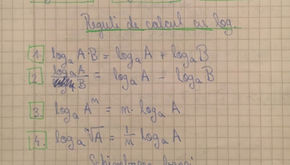 Reguli de calcul cu log.
1. logₐ A·B = logₐ A + logₐ B
2. logₐ A/B = logₐ A - logₐ B
3. logₐ Aᵐ = m·logₐ A
4. logₐ ᵐ√A = 1/m logₐ A